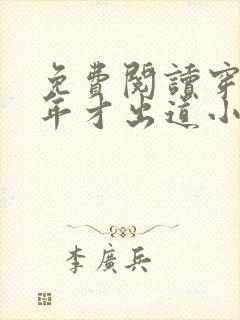 免費閱讀穿
年才出道小
李廣兵